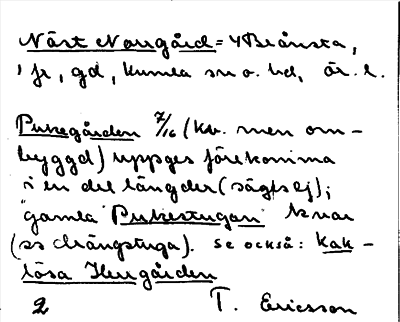 Näst Norrgård = 4 Brånsta,
1 fr, gd, Kumla sn o. hd, Ör. l.
Pukegården 7/16 (kv. men om-
byggd) uppges förekomma
i en del längder (sägfs ej);
"gamla" Pukestugan kvar
(ss drängstuga). se också: Kak-
lösa Herrgården
2 T. Ericsson